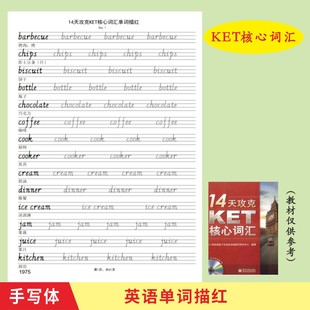 14天攻克KET核心词汇单词描红
barbecue barbecue barbecue barbecue
烤肉，烤
chips chips chips chips chips chips
炸土豆条(片)
biscuit biscuit biscuit biscuit biscuit
饼干
bottle bottle bottle bottle bottle
瓶子
chocolate chocolate chocolate chocolate
巧克力
coffee coffee coffee coffee coffee
咖啡
cook cook cook cook cook cook
厨师
cooker cooker cooker cooker cooker
炊具
cream cream cream cream cream
奶油
dinner dinner dinner dinner dinner
晚餐
ice cream ice cream ice cream ice cream
冰淇淋
jam jam jam jam jam jam
果酱
juice juice juice juice juice juice
果汁
kitchen kitchen kitchen kitchen kitchen
厨房
1975
KET核心词汇
14天攻克
KET
核心词汇
（教材仅供参考）
手写体
英语单词描红